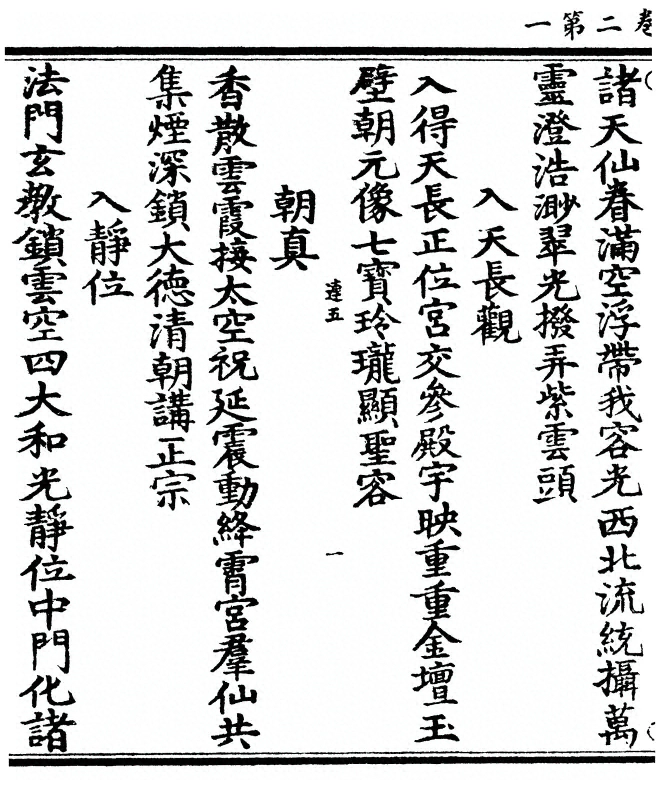 卷二第一
諸天仙眷滿空浮帶我容光西北流統攝萬
靈澄浩渺翠光撥弄紫雲頭
入天長觀
入得天長正位宮交參殿宇映重重金壇玉
壁朝元像七寶玲瓏顯聖容
連五
一
朝真
香散雲霞接太空祝延震動絳霄宮羣仙共
集煙深鎖大德清朝講正宗
入靜位
法門玄教鎖雲空四大和光靜位中門化諸